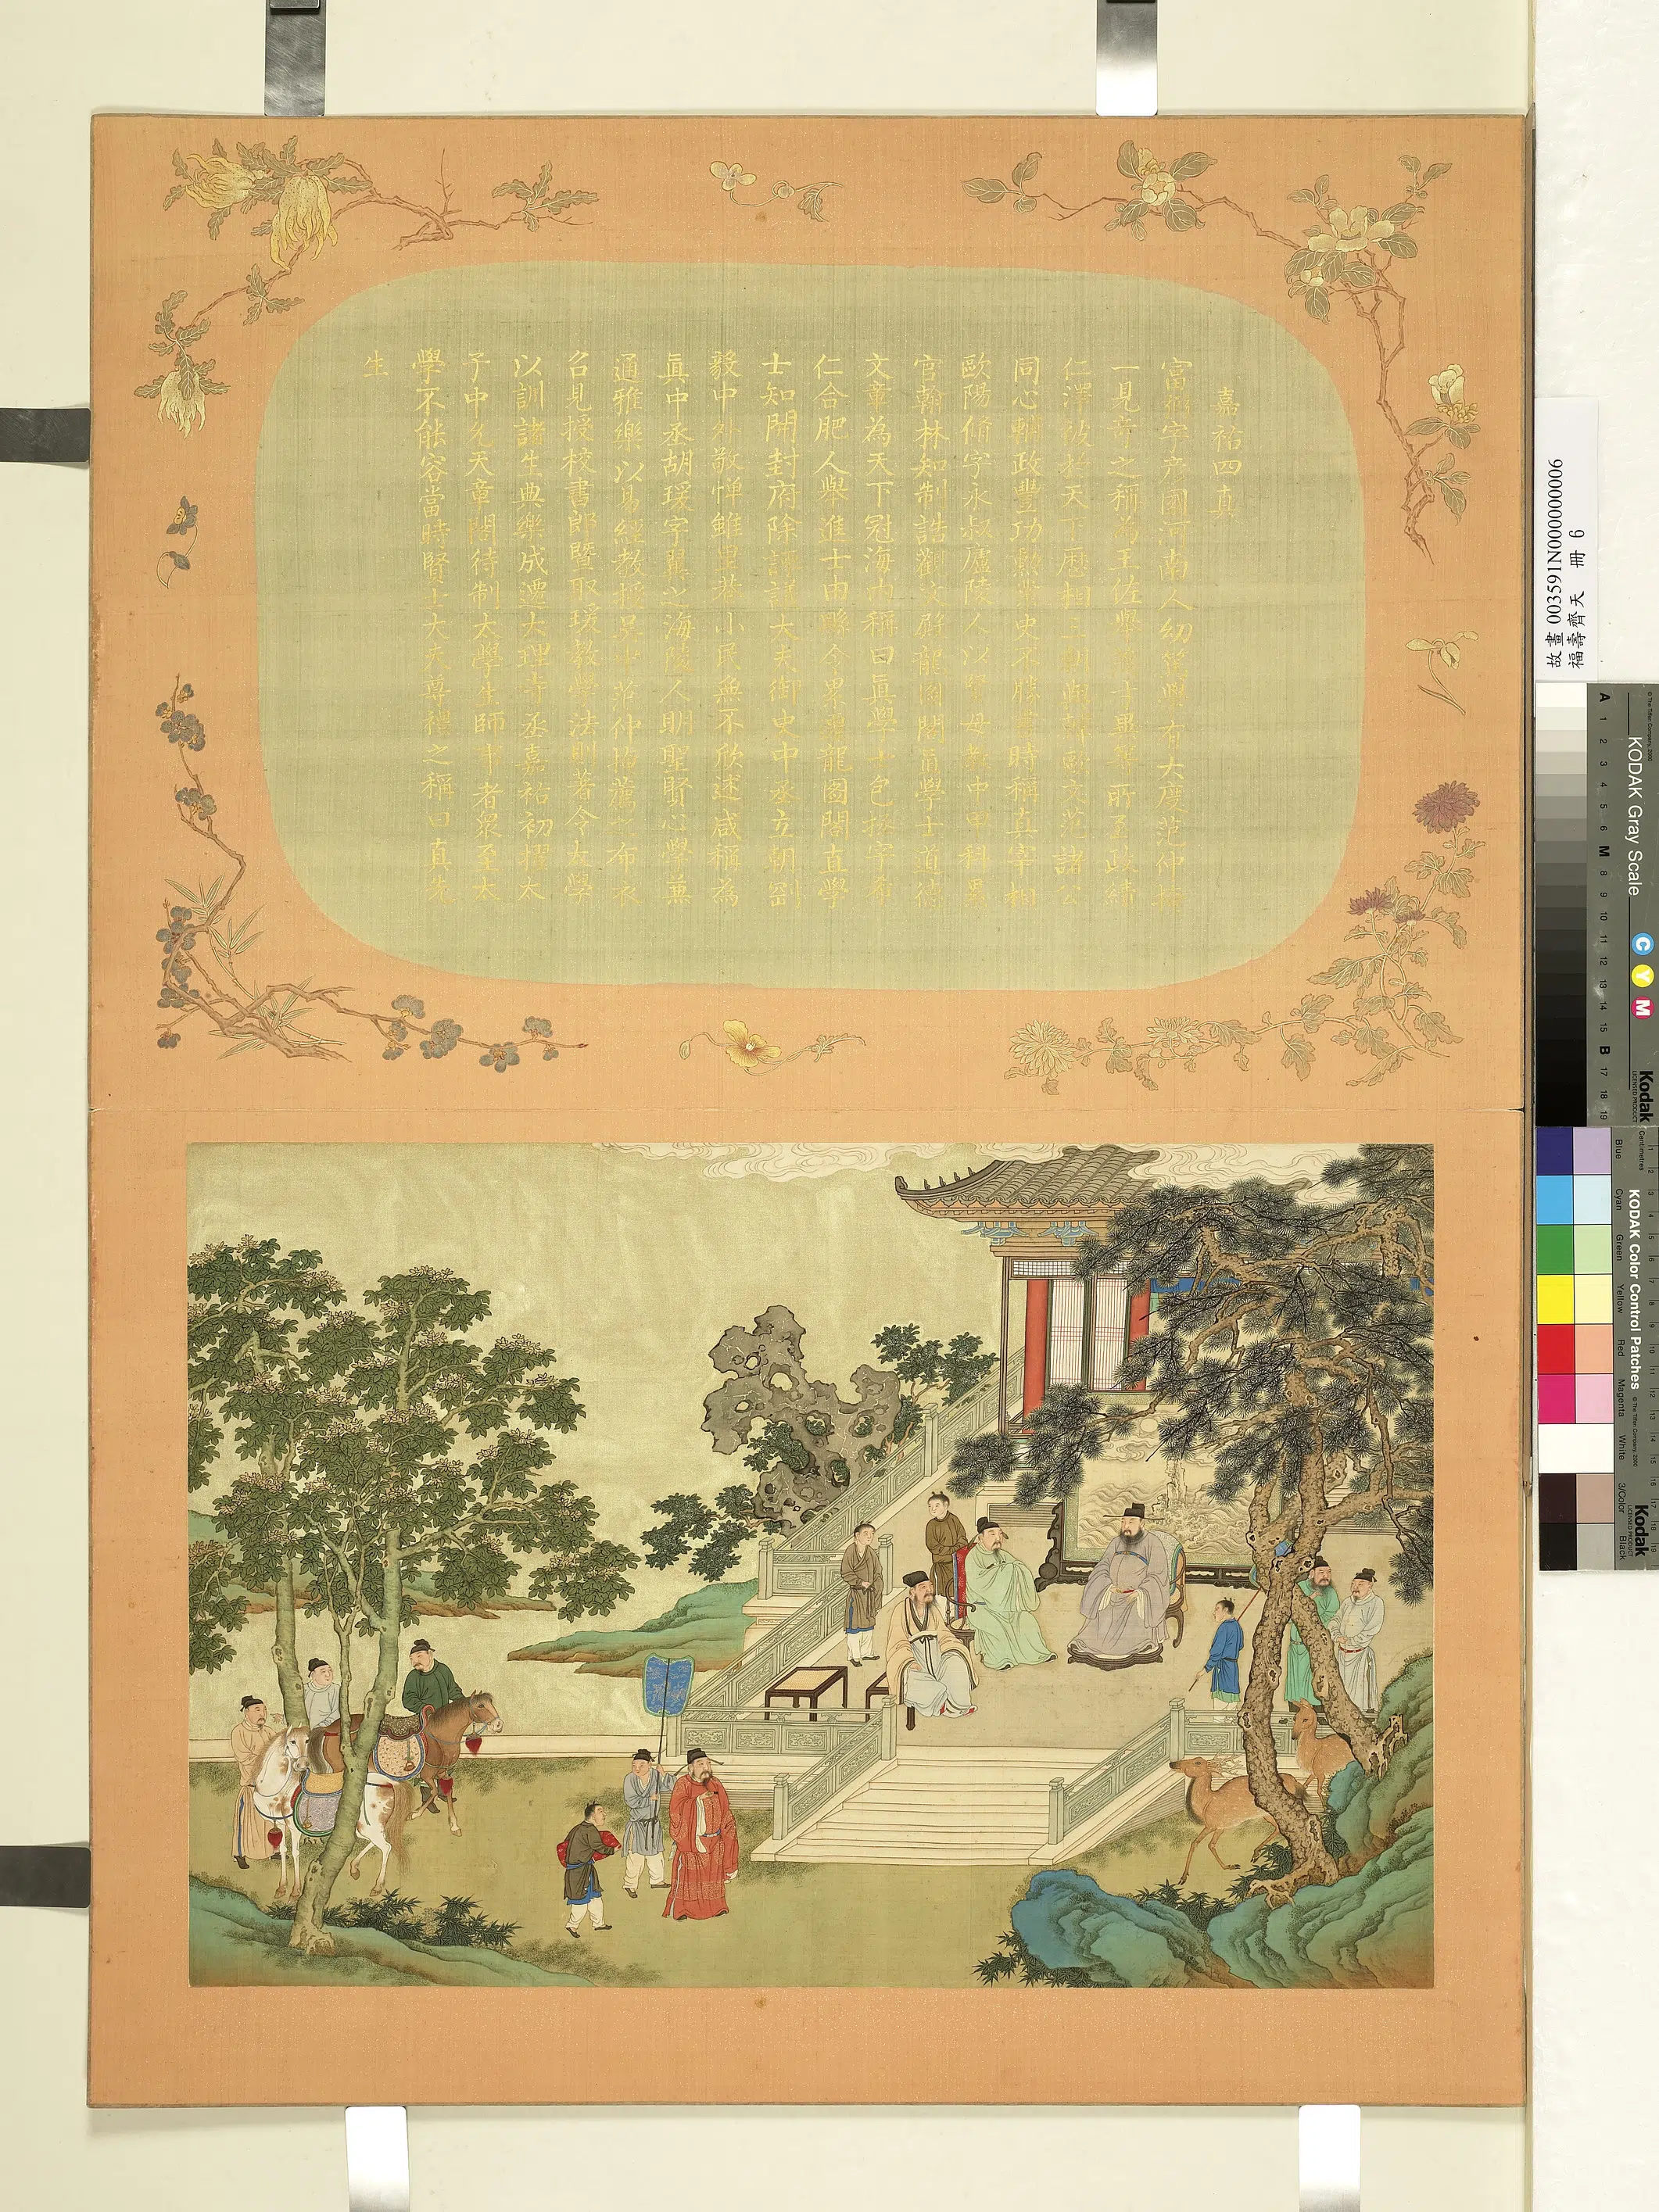 嘉祐四真
富弼字彥國河南人幼篤學有大度范仲淹
一見奇之稱為王佐舉 士異等所至政績
仁澤被於天下歷相三朝與韓歐文范諸公
同心輔政豐功勳業史不勝書時稱真宰相
歐陽脩字永叔廬陵人以賢母教中甲科累
官翰林知制誥觀文殿龍圖閣直學士道德
文章為天下冠海內稱曰真學士包拯字希
仁合肥人舉進士由縣令累遷龍圖閣直學
士知開封府除諫議大夫御史中丞立朝剛
毅中外敬憚雖里巷小民無不欣述咸稱為
真中丞胡瑗字翼之海陵人明聖賢心學兼
通雅樂以易經教授吳中范仲淹薦之布衣
召見授校書郎暨取瑗教學法則著令太學
以訓諸生典樂成遷大理寺丞嘉祐初擢太
子中允天章閣待制太學生師事者眾至太
學不能容當時賢士大夫尊禮之稱曰真先
生
故畫 003591N000000006
福壽齊天 冊 6
KODAK Gray Scale
C Y M
Kodak
LICENSED PRODUCT
A 1 2 3 4 5 6 M 8 9 10 11 12 13 14 15 B 17 18 19
KODAK Color Control Patches
Kodak
LICENSED PRODUCT
Centimetres
Blue Cyan Green Yellow Red Magenta White 3/Color Black